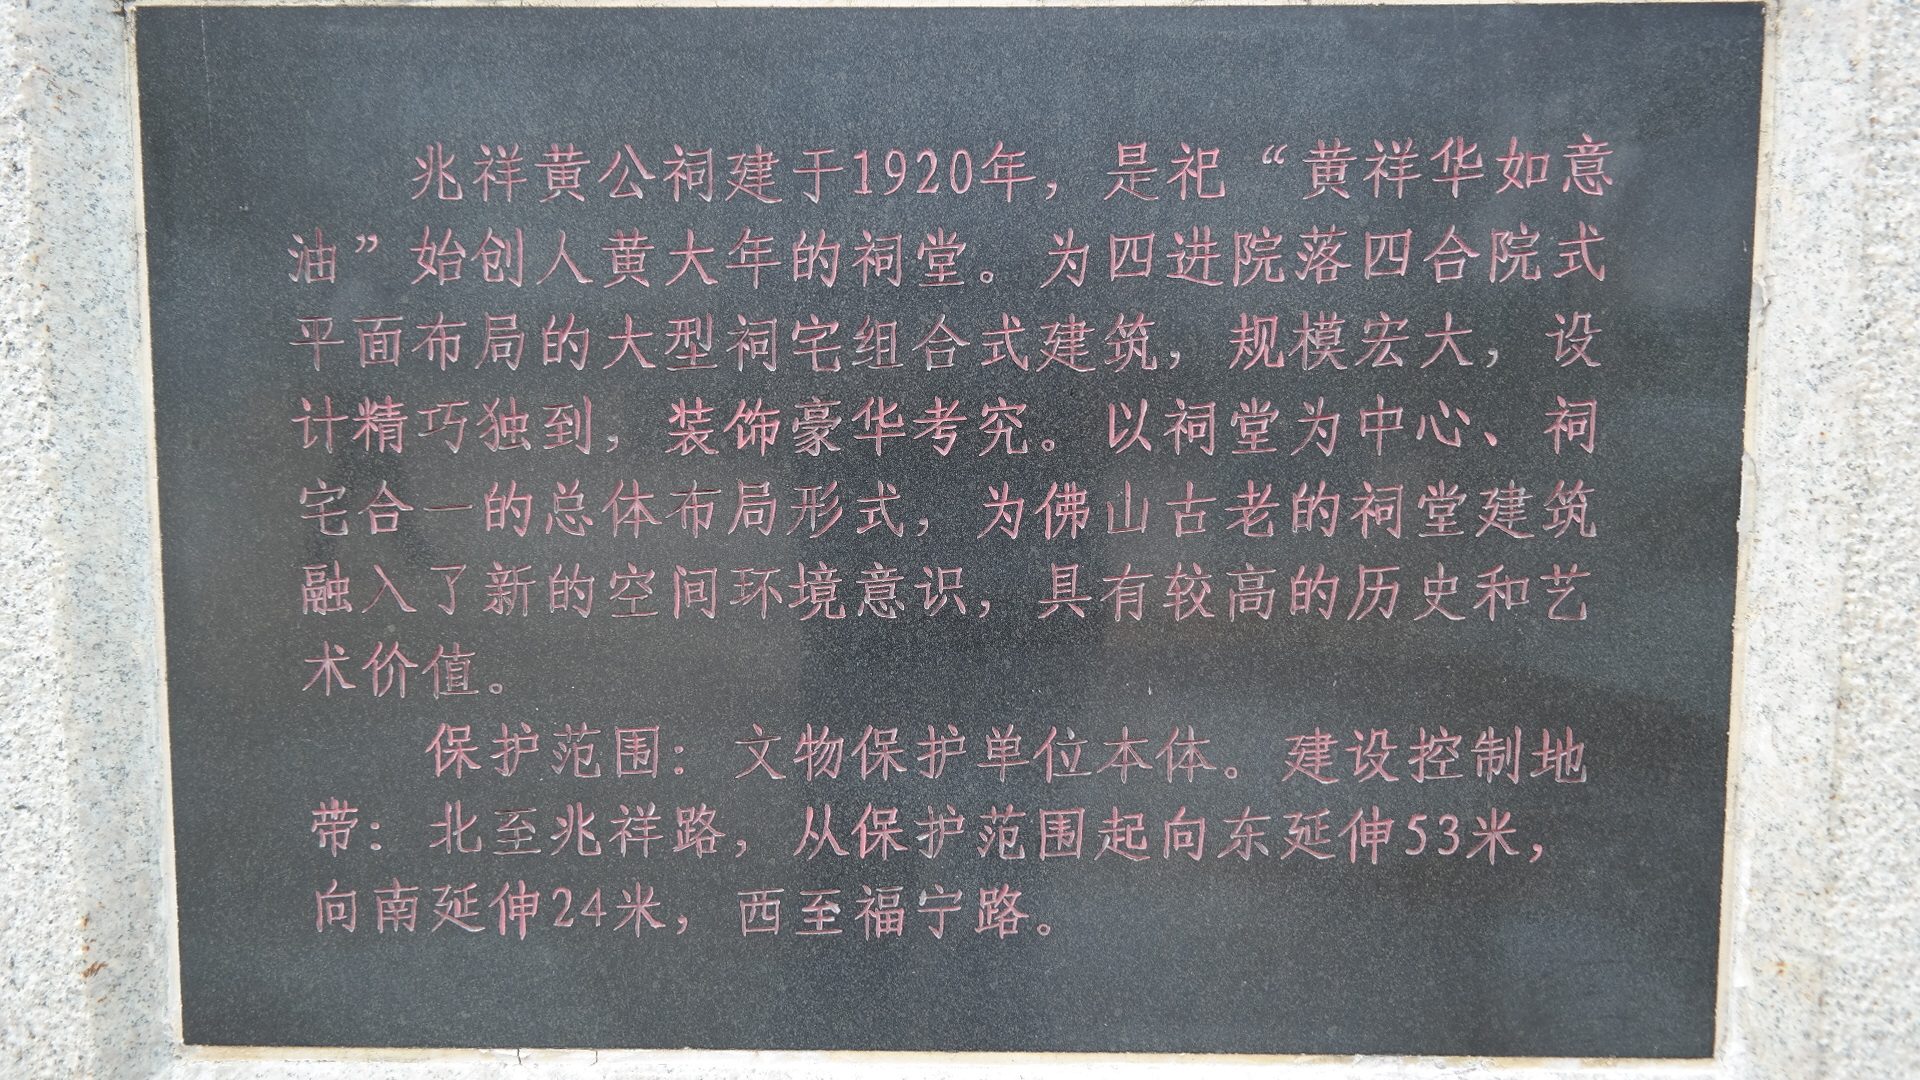 兆祥黄公祠建于1920年，是祀“黄祥华如意
油”始创人黄大年的祠堂。为四进院落四合院式
平面布局的大型祠宅组合式建筑，规模宏大，设
计精巧独到，装饰豪华考究。以祠堂为中心、祠
宅合一的总体布局形式，为佛山古老的祠堂建筑
融入了新的空间环境意识，具有较高的历史和艺
术价值。
保护范围：文物保护单位本体。建设控制地
带：北至兆祥路，从保护范围起向东延伸53米，
向南延伸24米，西至福宁路。